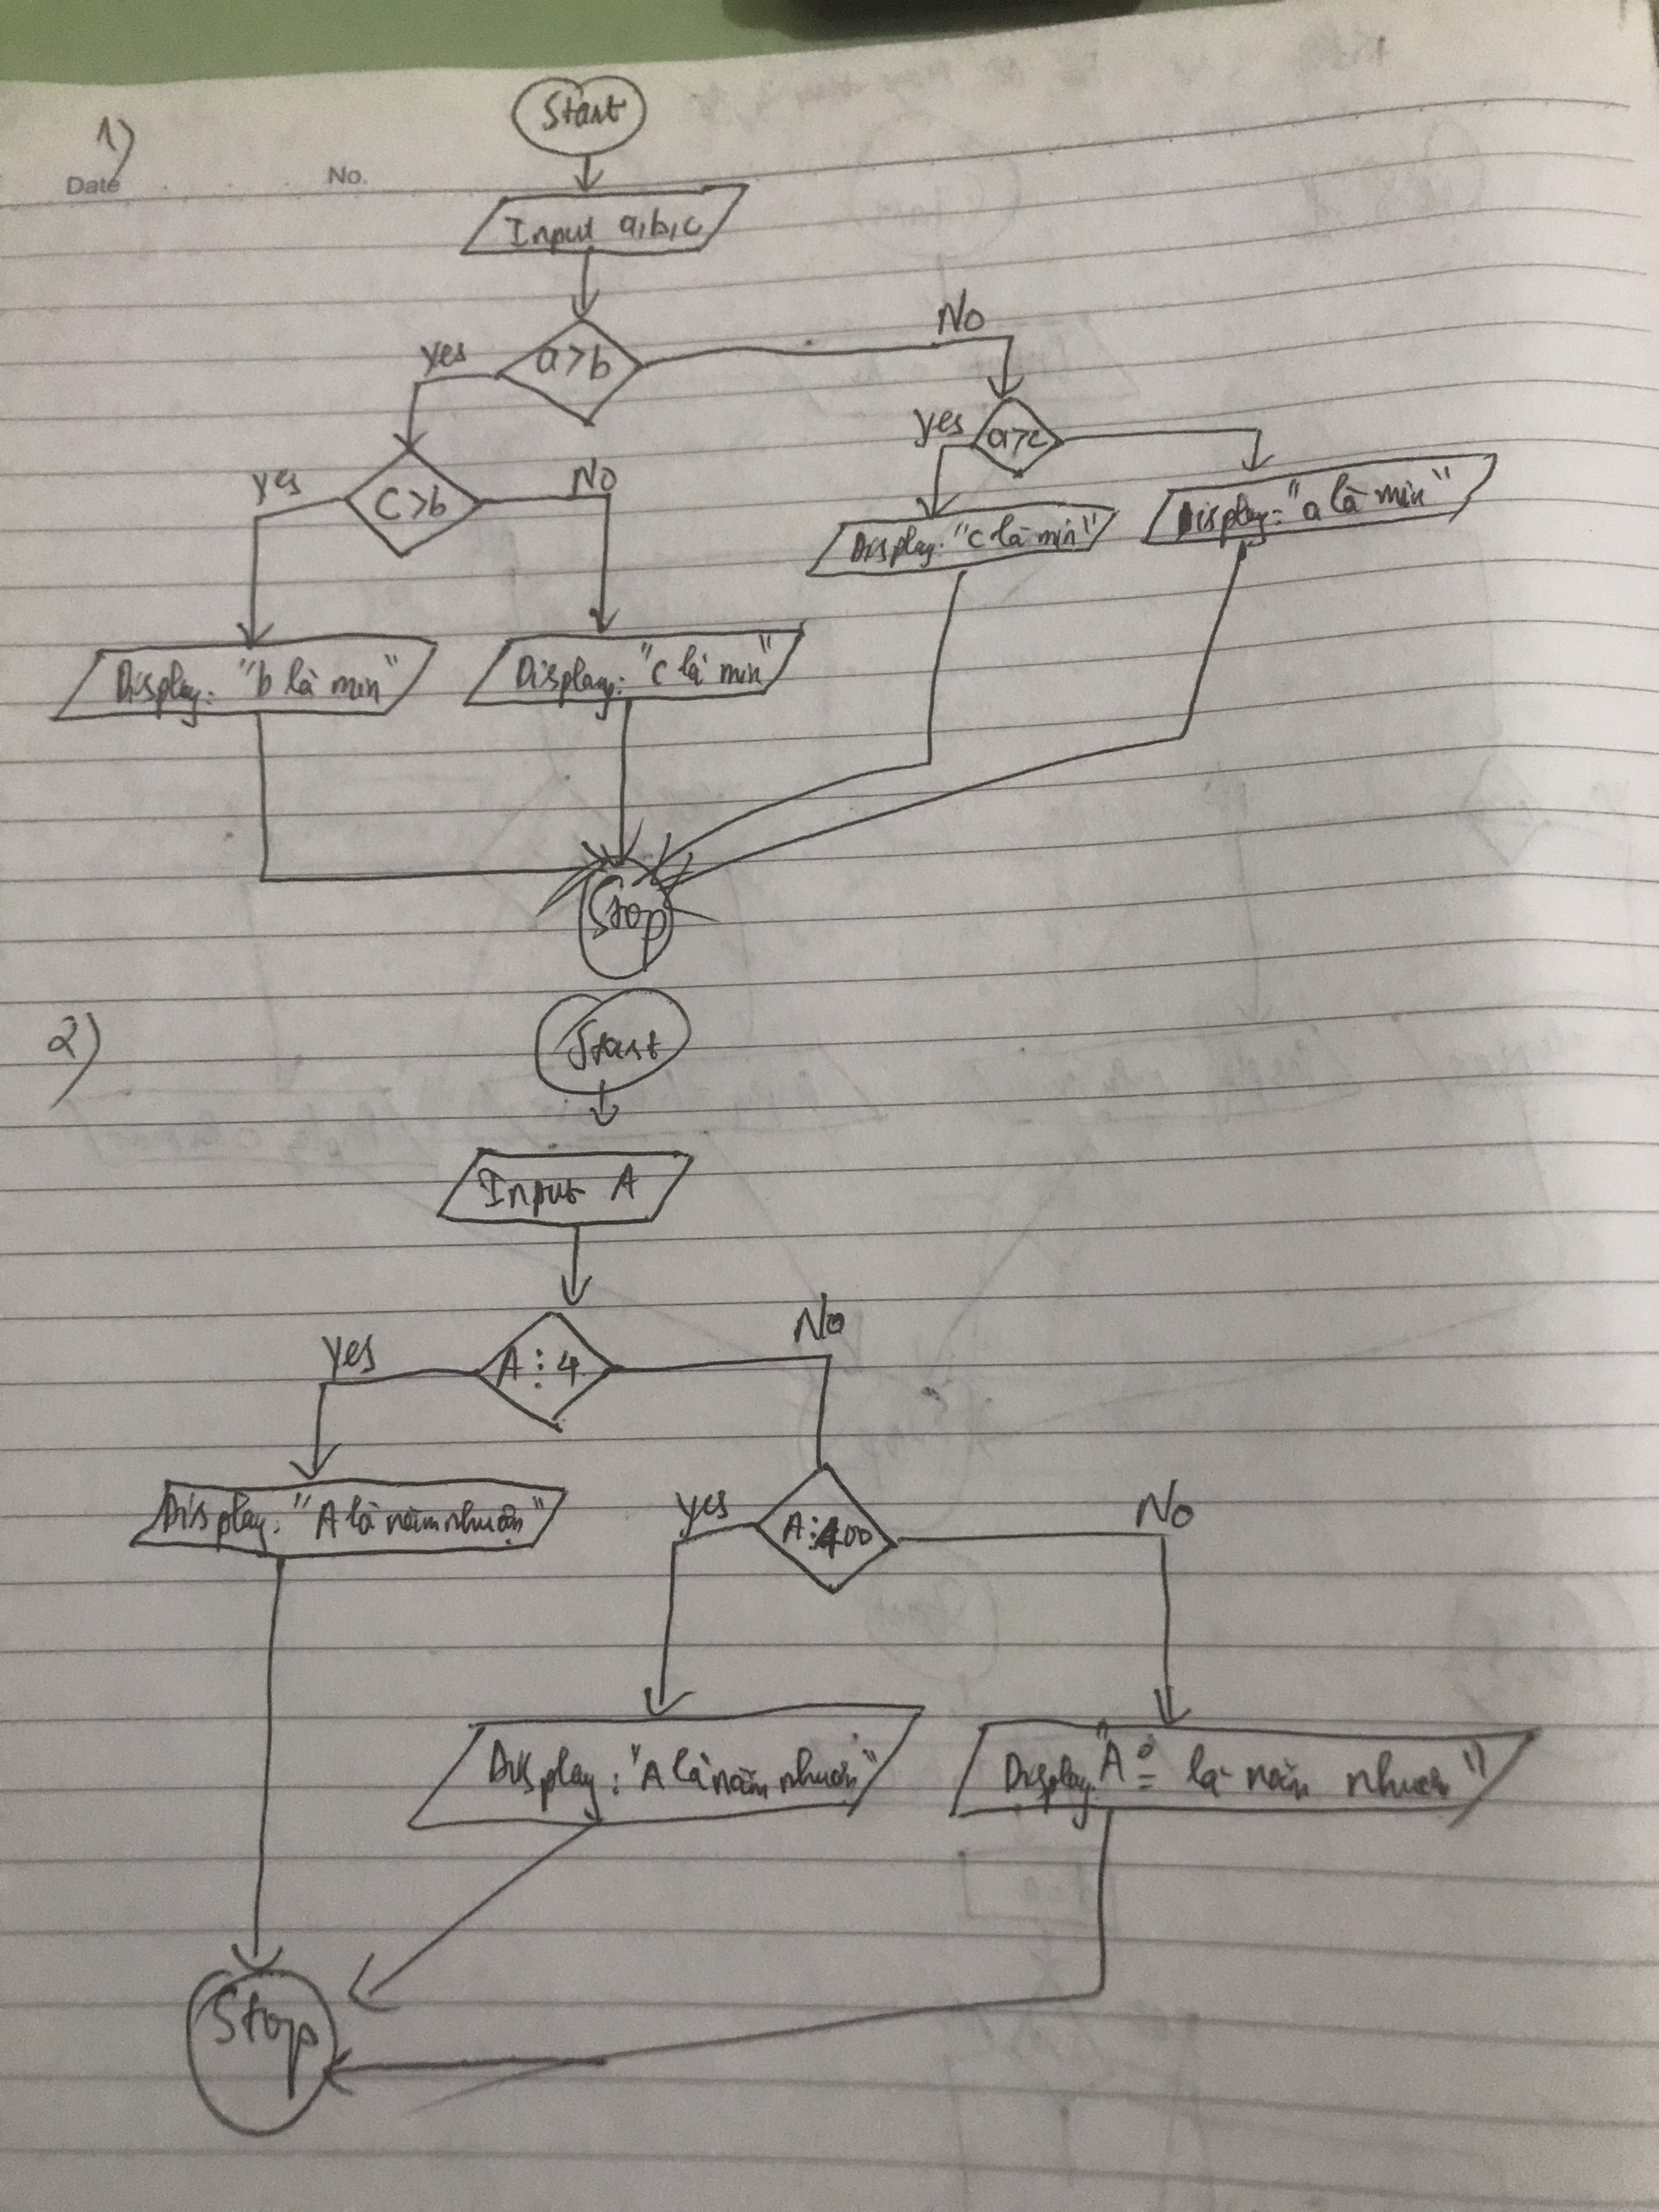 1)
Start
Date No.
Input a,b,c
No
yes a>b
yes a>c
yes C>b No
Display: "c là min" Display: "a là min"
Display: "b là min" Display: "c là min"
Stop
2)
Start
Input A
yes A⋮4 No
Display: "A là năm nhuận" yes A⋮400 No
Display: "A là năm nhuận" Display: "A là năm nhuận"
Stop